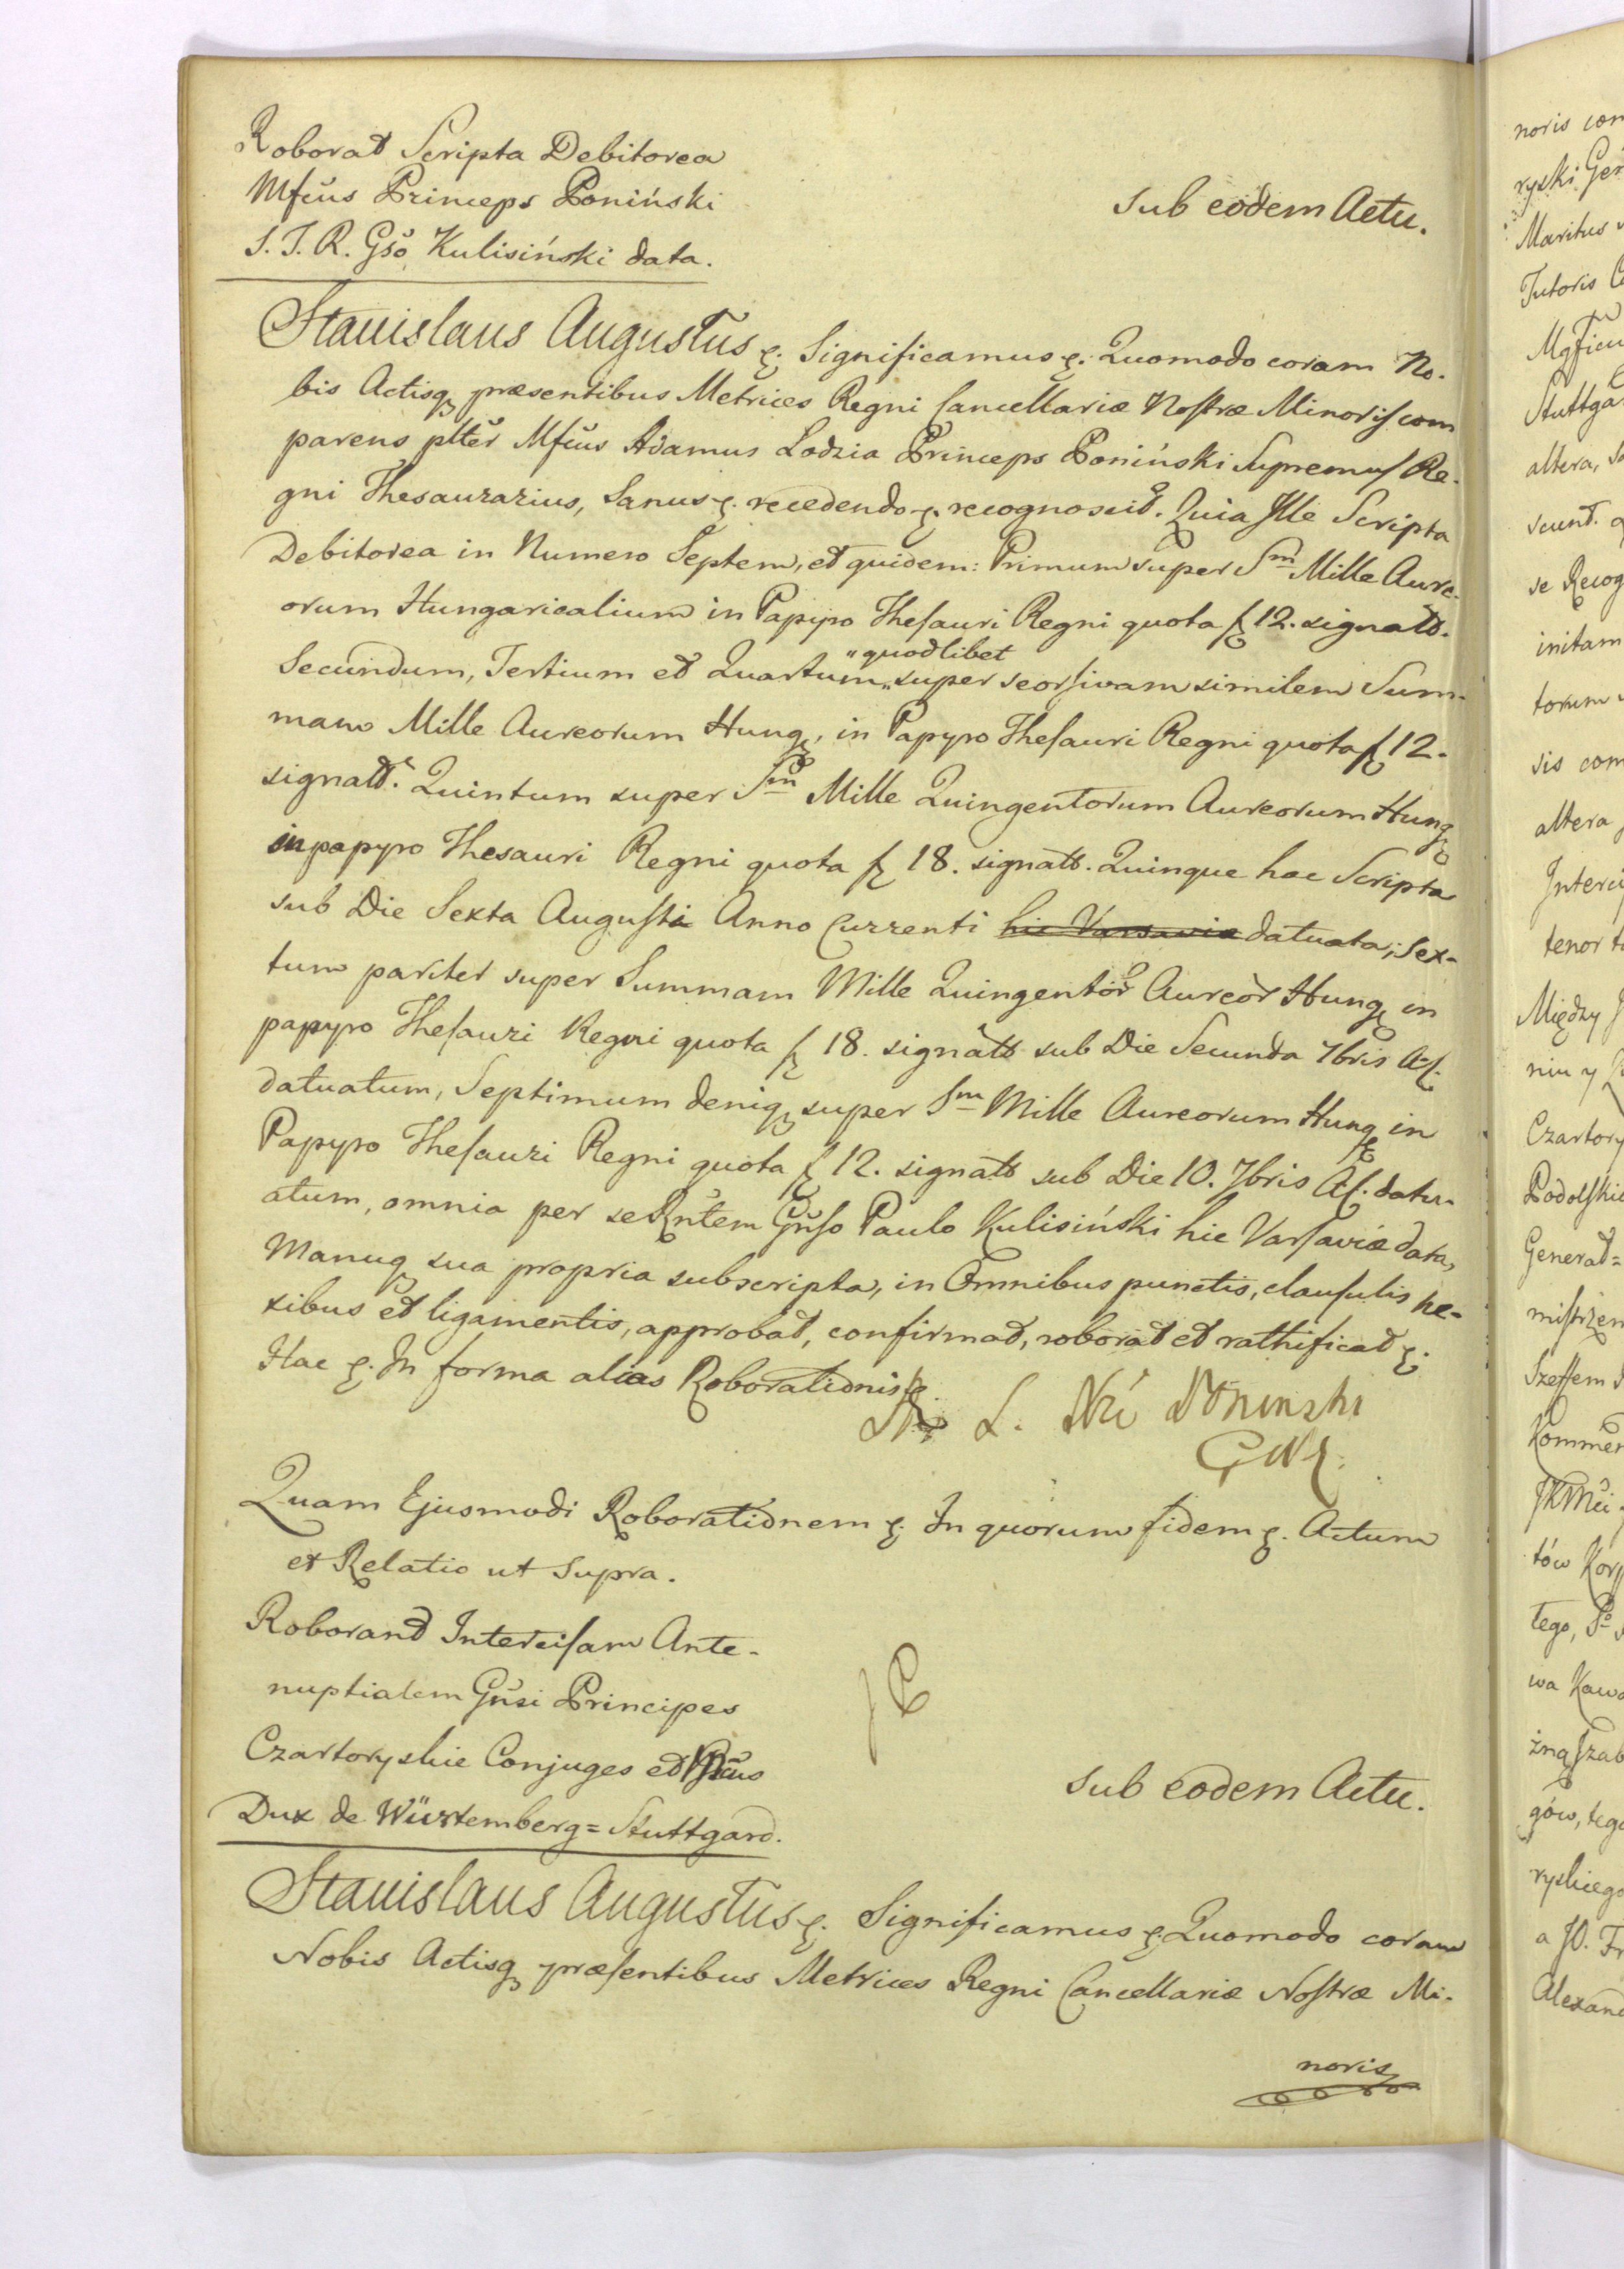 Roborat Scripta Debitorea
Mfcus Princeps Poniński
S. T. R. Gso Kulisiński data.
Sub eodem Actu.
Stanislaus Augustus ę. Significamus ę. Quomodo coram No-
bis Actisq præsentibus Metrices Regni Cancellariæ Nostræ Minoris com
parens plter Mfcus Adamus Lodzia Princeps Poniński Supremus Re-
gni Thesaurarius, Sanus ę. recedendo ę. recognoscit. Quia Ille Scripta
Debitorea in Numero Septem, et quidem: Primum super Sm Mille Aure-
orum Hungaricalium in Papyro Thesauri Regni quota f 12. signato.
Secundum, Tertium et Quartum "quodlibet" super seorsivam similem Sum-
mam Mille Aureorum Hung, in Papyro Thesauri Regni quota f 12.
signato. Quintum super Sm Mille Quingentorum Aureorum Hung
in papyro Thesauri Regni quota f 18. signato. Quinque hæc Scripta
sub Die Sexta Augusti Anno Currenti hic Varsaviæ datuata; Sex-
tum pariter super Summam Mille Quingentor Aureor Hung in
papyro Thesauri Regni quota f 18. signato sub Die Secunda 7bris A f.
datuatum, Septimum deniq super Sm Mille Aureorum Hung in
Papyro Thesauri Regni quota f 12. signato sub Die 10. 7bris A f. datu-
atum, omnia per se Rntem Gnso Paulo Kulisiński hic Varsaviæ data,
Manuq sua propria subscripta, in Omnibus punctis, clausulis ne-
xibus et ligamentis, approbat, confirmat, roborat et rathificat ę.
Hac ę. In forma alias Roborationis ę.
L. Poninski
Quam Ejusmodi Roborationem ę. In quorum fidem ę. Actum
et Relatio ut Supra.
Roborand Intercisam Ante-
nuptialem Gnsi Principes
Czartoryskie Conjuges et
Dux de Würtemberg=Stuttgard.
Sub eodem Actu.
Stanislaus Augustus ę. Significamus ę. Quomodo coram
Nobis Actisq præsentibus Metrices Regni Cancellariæ Nostræ Mi-
noris
noris com
ryski Gen
Maritus
Tutoris
Mgficu
Stuttga
altera,
scunt.
se Recog
initam
torum
sis com
altera
Interci
tenor
Między
niu y
Czartory
Podolskie
Generał=
mistrzem
Szeffem
Kommen
tów Kor
tego,
wa Kawa
żną Szab
gów, teg
ryskiego
a JO. Fr
Alexand